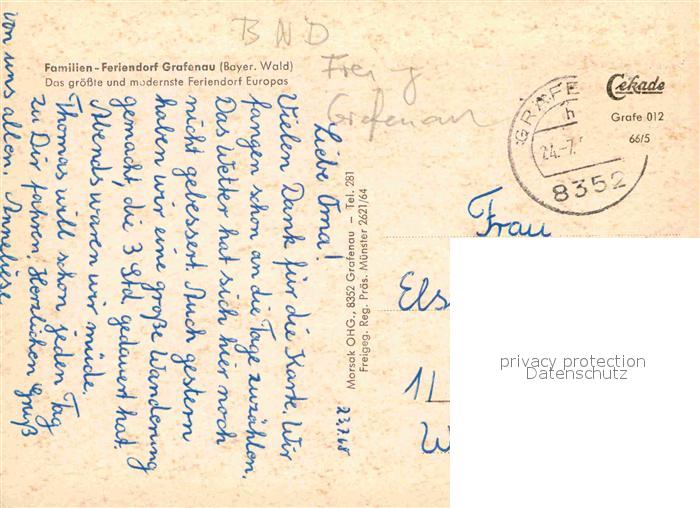 BND
Frei
Grafenau
Familien-Feriendorf Grafenau (Bayer. Wald)
Das größte und modernste Feriendorf Europas
Cekade
Grafe 012
66/5
GRAFE
24.-7.
8352
23.7.68
Liebe Oma!
Vielen Dank für die Karte. Wir
fangen schon an die Tage zuzählen.
Das Wetter hat sich hier noch
nicht gebessert. Auch gestern
haben wir eine große Wanderung
gemacht, die 3 Std. gedauert hat.
Abends waren wir müde.
Thomas will schon jeden Tag
zu Dir fahren. Herzlichen Gruß
von uns allen. Anneliese
Morsak OHG., 8352 Grafenau – Tel. 281
Freigeg. Reg. Präs. Münster 2621/64
Frau
Els
1L
W
privacy protection
Datenschutz